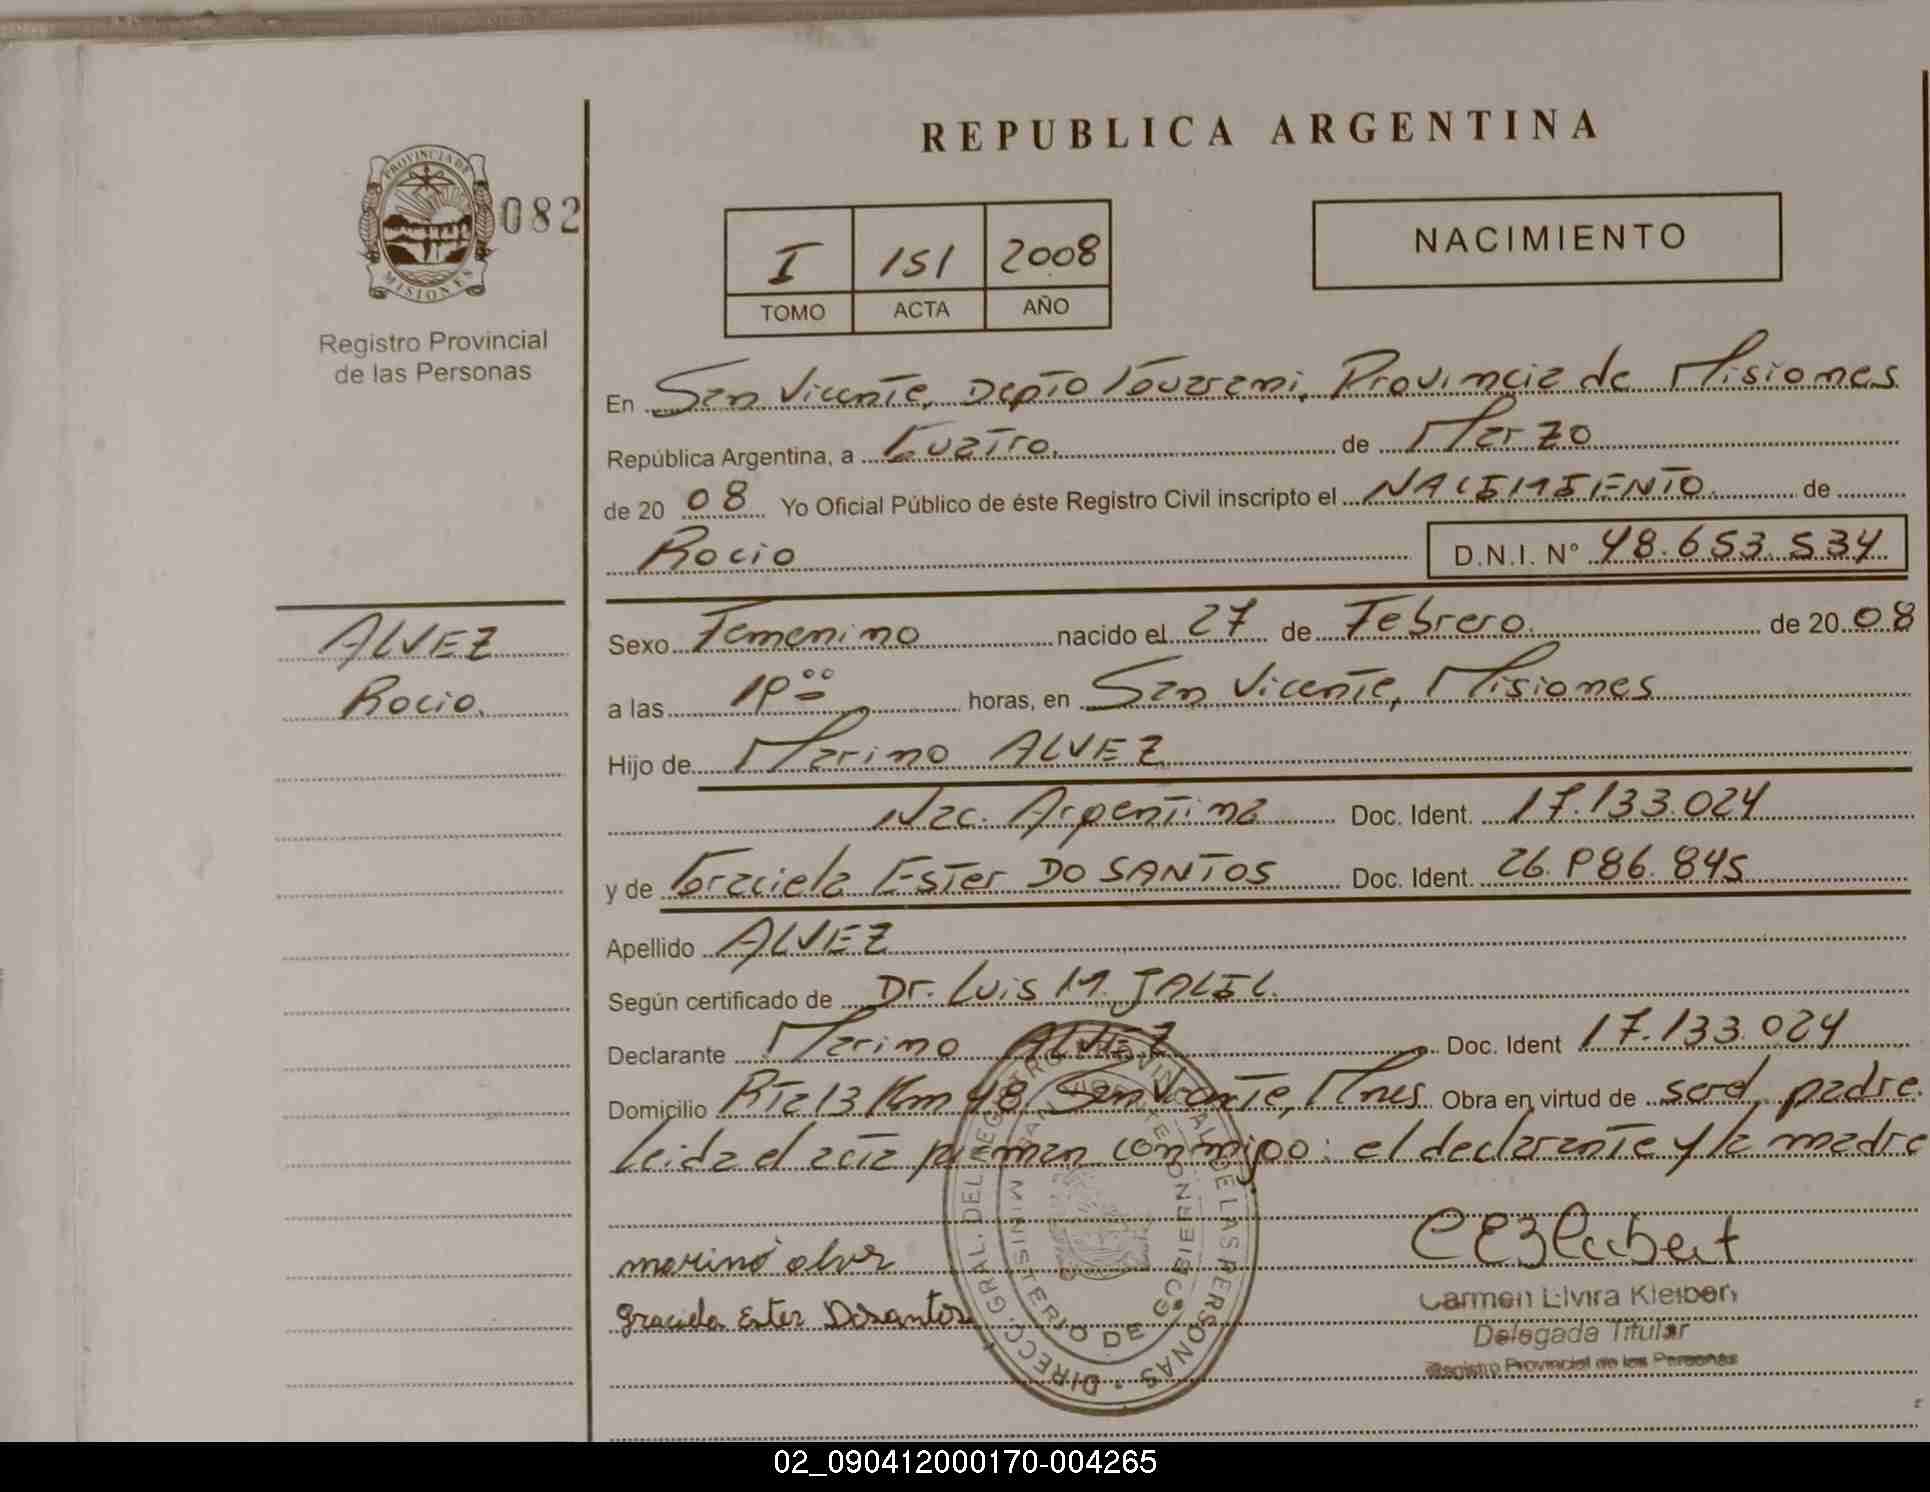 REPUBLICA ARGENTINA
PROVINCIA DE
MISIONES
082
Registro Provincial
de las Personas
I 151 2008
TOMO ACTA AÑO
NACIMIENTO
En San Vicente, Depto Guarani, Provincia de Misiones
República Argentina, a Cuatro. de Marzo
de 20 08 Yo Oficial Público de éste Registro Civil inscripto el NACIMIENTO. de
Rocio D.N.I. N° 48.653.534
ALVEZ
Rocio.
Sexo Femenino nacido el 27 de Febrero. de 20 08
a las 19 00 horas, en San Vicente, Misiones
Hijo de Marino ALVEZ
Nac. Argentina Doc. Ident. 17.133.024
y de Graciela Ester DO SANTOS Doc. Ident. 26.986.845
Apellido ALVEZ
Según certificado de Dr. Luis M. JALIL.
Declarante Marino ALVEZ Doc. Ident 17.133.024
Domicilio Rta 13 Km 48 San Vicente, Mnes. Obra en virtud de ser el padre.
Leida el acta firman conmigo: el declarante y la madre
marino alvez
Graciela Ester Dosantos
DIRECC. GRAL. DEL REGISTRO PROVINCIAL DE LAS PERSONAS
MINISTERIO DE GOBIERNO
SAN VICENTE
Carmen Elvira Kleiber
Delegada Titular
Registro Provincial de las Personas
02_090412000170-004265